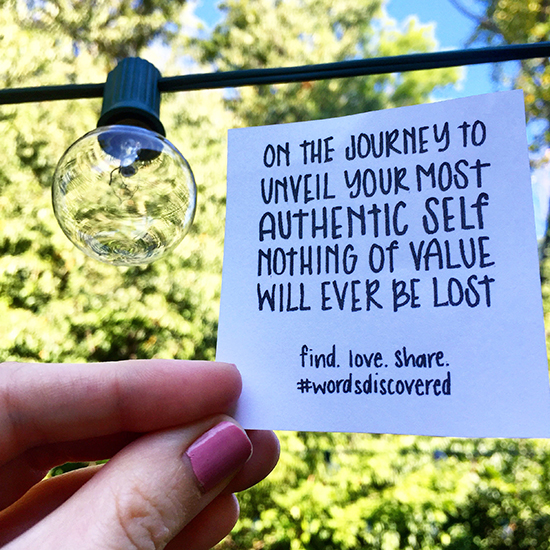 ON THE JOURNEY TO
UNVEIL YOUR MOST
AUTHENTIC SELF
NOTHING OF VALUE
WILL EVER BE LOST
find. love. share.
#wordsdiscovered